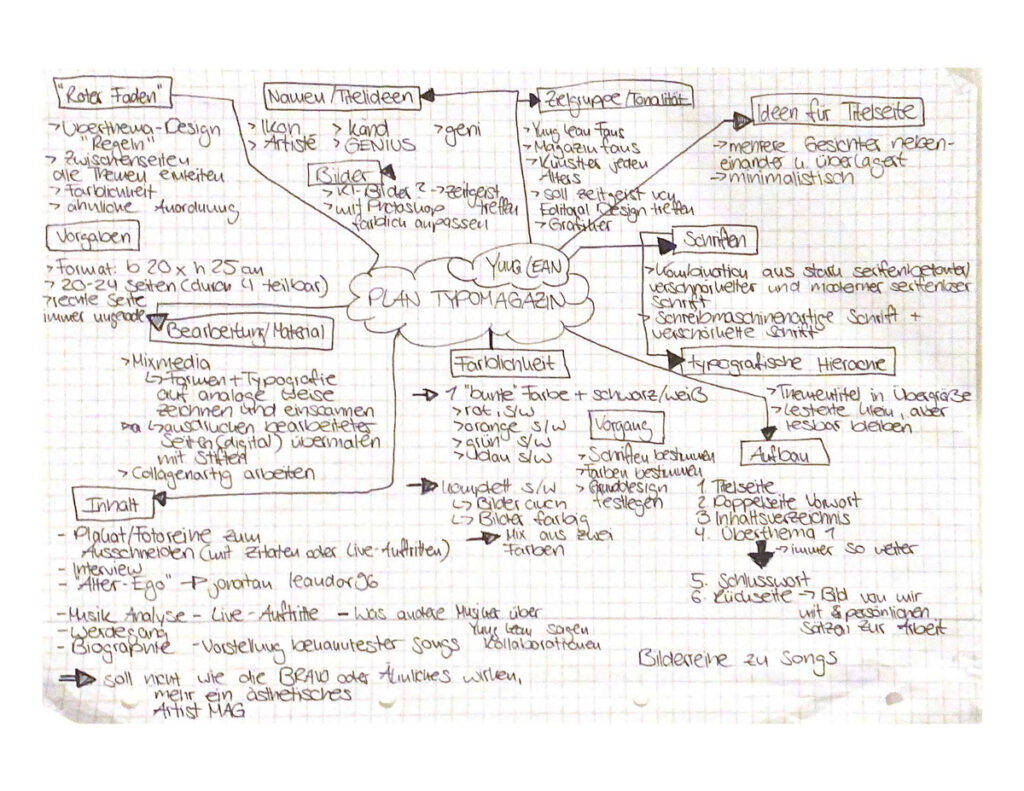 "Roter Faden"
> Überthema-Design
"Regeln"
> Zwischenseiten
die Themen einleiten
> Farblichkeit
> ähnliche Anordnung
Namen/Titelideen
> Ikon > känd > geni
> Artiste > GENIUS
Bilder
> KI-Bilder? -> zeitgeist treffen
> mit Photoshop
farblich anpassen
Zielgruppe/Tonalität
> Yung Lean Fans
> Magazin fans
> Künstler jeden
Alters
> soll zeitgeist von
Editoral Design treffen
> Grafiker
Ideen für Titelseite
- mehrere Gesichter neben-
einander u überlagert
- minimalistisch
Vorgaben
> Format: b 20 x h 25 cm
> 20-24 Seiten (durch 4 teilbar)
> rechte Seite
immer ungerade
YUNG LEAN
PLAN TYPOMAGAZIN
Schriften
> Kombination aus stark serifenbetonter/
verschnörkelter und moderner serifenloser
Schrift
> Schreibmaschinenartige Schrift +
verschnörkelte Schrift
typografische Hierachie
> Thementitel in Übergröße
> Lesetexte klein, aber
lesbar bleiben
Bearbeitung/Material
> Mixmedia
Formen + Typografie
auf analoge Weise
zeichnen und einscannen
ausdrucken bearbeiteter
Seiten (digital) übermalen
mit Stiften
> Collagenartig arbeiten
Farblichkeit
1 "bunte" Farbe + schwarz/weiß
> rot, s/w
> orange s/w
> grün s/w
> blau s/w
komplett s/w
Bilder auch
Bilder farbig
Mix aus zwei
Farben
Vorgang
> Schriften bestimmen
> Farben bestimmen
> Grunddesign
festlegen
Aufbau
1. Titelseite
2 Doppelseite Vorwort
3 Inhaltsverzeichnis
4. Überthema 1
-> immer so weiter
5. Schlusswort
6. Rückseite -> Bild von mir
mit persönlichen
Sätzen zur Arbeit
Inhalt
- Plakat/Fotoreihe zum
Ausschneiden (mit Zitaten oder Live-Auftritten)
- Interview
- "Alter-Ego" -> jonatan leandoer96
- Musik Analyse - Live-Auftritte - Was andere Musiker über
Yung Lean sagen
- Werdegang
- Biographie - Vorstellung bekanntester Songs Kollaborationen
Bilderreihe zu Songs
soll nicht wie die BRAVO oder Ähnliches wirken,
mehr ein ästhetisches
Artist MAG